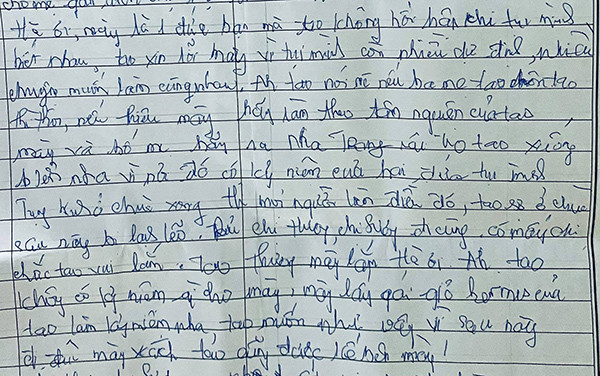 Hè ơi, mày là 1 đứa bạn mà tao không hối hận khi tụi mình
biết nhau, tao xin lỗi mày vì tụi mình còn nhiều dự định, nhiều
chuyện muốn làm cùng nhau. Ah tao nói rồi nếu ba mẹ tao chôn tao
thì thôi, nếu thiêu mày hãy làm theo tâm nguyện của tao
mày và bố mẹ hãy ra nha Trang rải tro tao xuống
biển nha vì nơi đó có kỷ niệm của hai đứa tụi mình
xong thì mọi người làm điều đó, tao sợ ở chùa
sau này bị lạnh lẽo. chị thủy, chị cũng có mấy chị
chắc tao vui lắm. Tao thương mày lắm Hè ơi Ah tao
không có kỷ niệm gì cho mày, mày lấy cái giỏ hermes của
tao làm kỷ niệm nha tao muốn như vậy vì sau này
đi đâu mày xách tao cũng được kế bên mày!